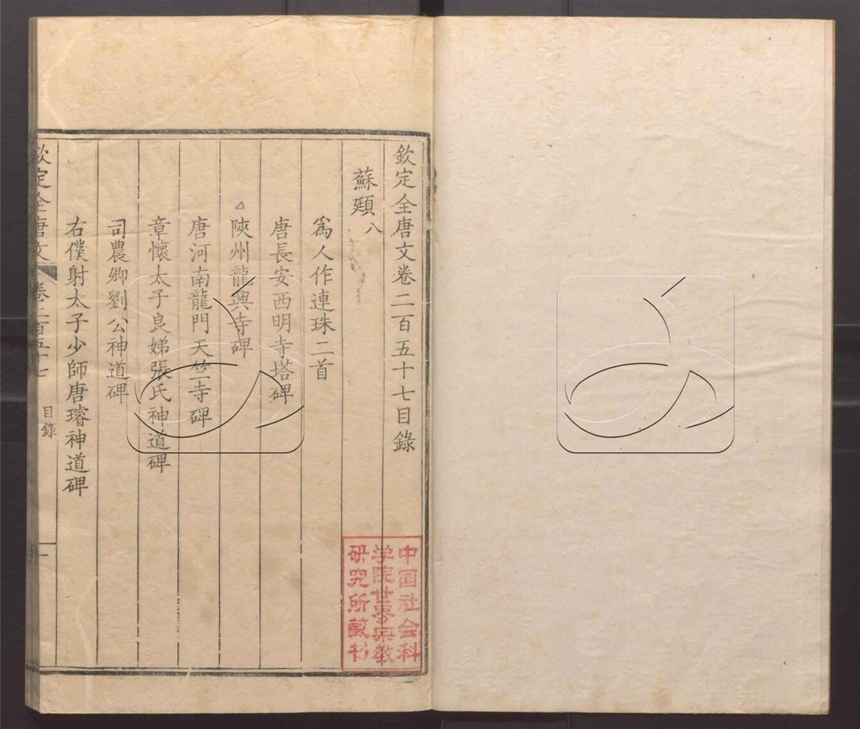 欽定全唐文卷二百五十七目錄
蘇頲 八
爲人作連珠二首
唐長安西明寺塔碑
陝州龍興寺碑
唐河南龍門天竺寺碑
章懷太子良娣張氏神道碑
司農卿劉公神道碑
右僕射太子少師唐璿神道碑
欽定全唐文 卷二百五十七 目錄 一
中国社会科
学院世界宗教
研究所藏书